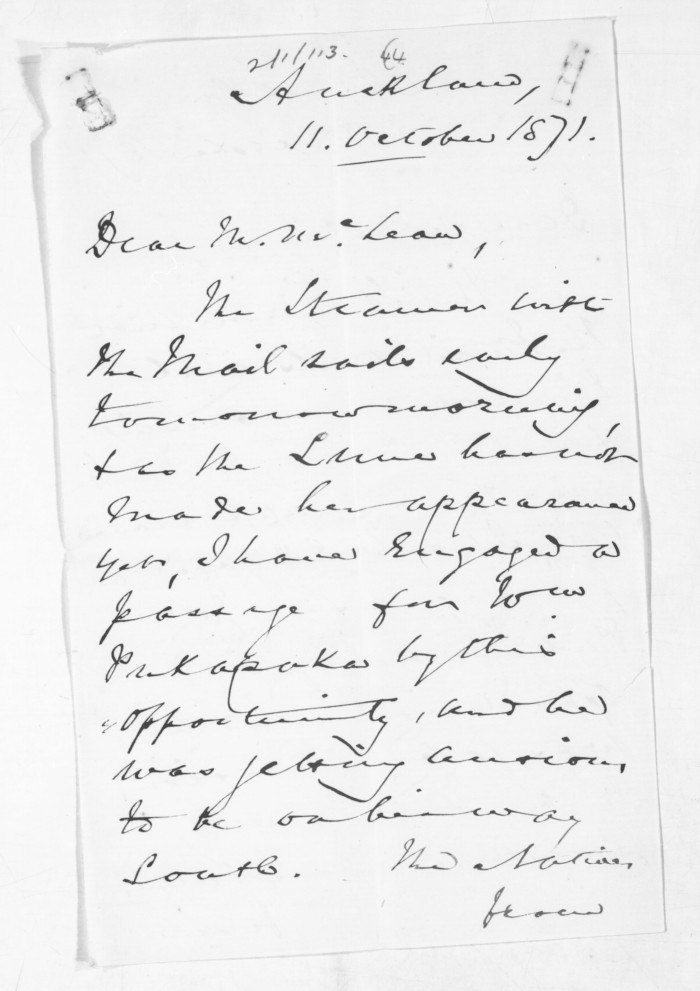 2/1/113. 44
Auckland,
11. October 1871.
Dear Mr. McLean,
The Steamer with
the Mail sails early
tomorrow morning,
+ as the Luna has not
made her appearance
yet, I have engaged a
passage for
Pukapuka by this
opportunity, and he
was getting anxious
to be on his way
South. The Natives
from